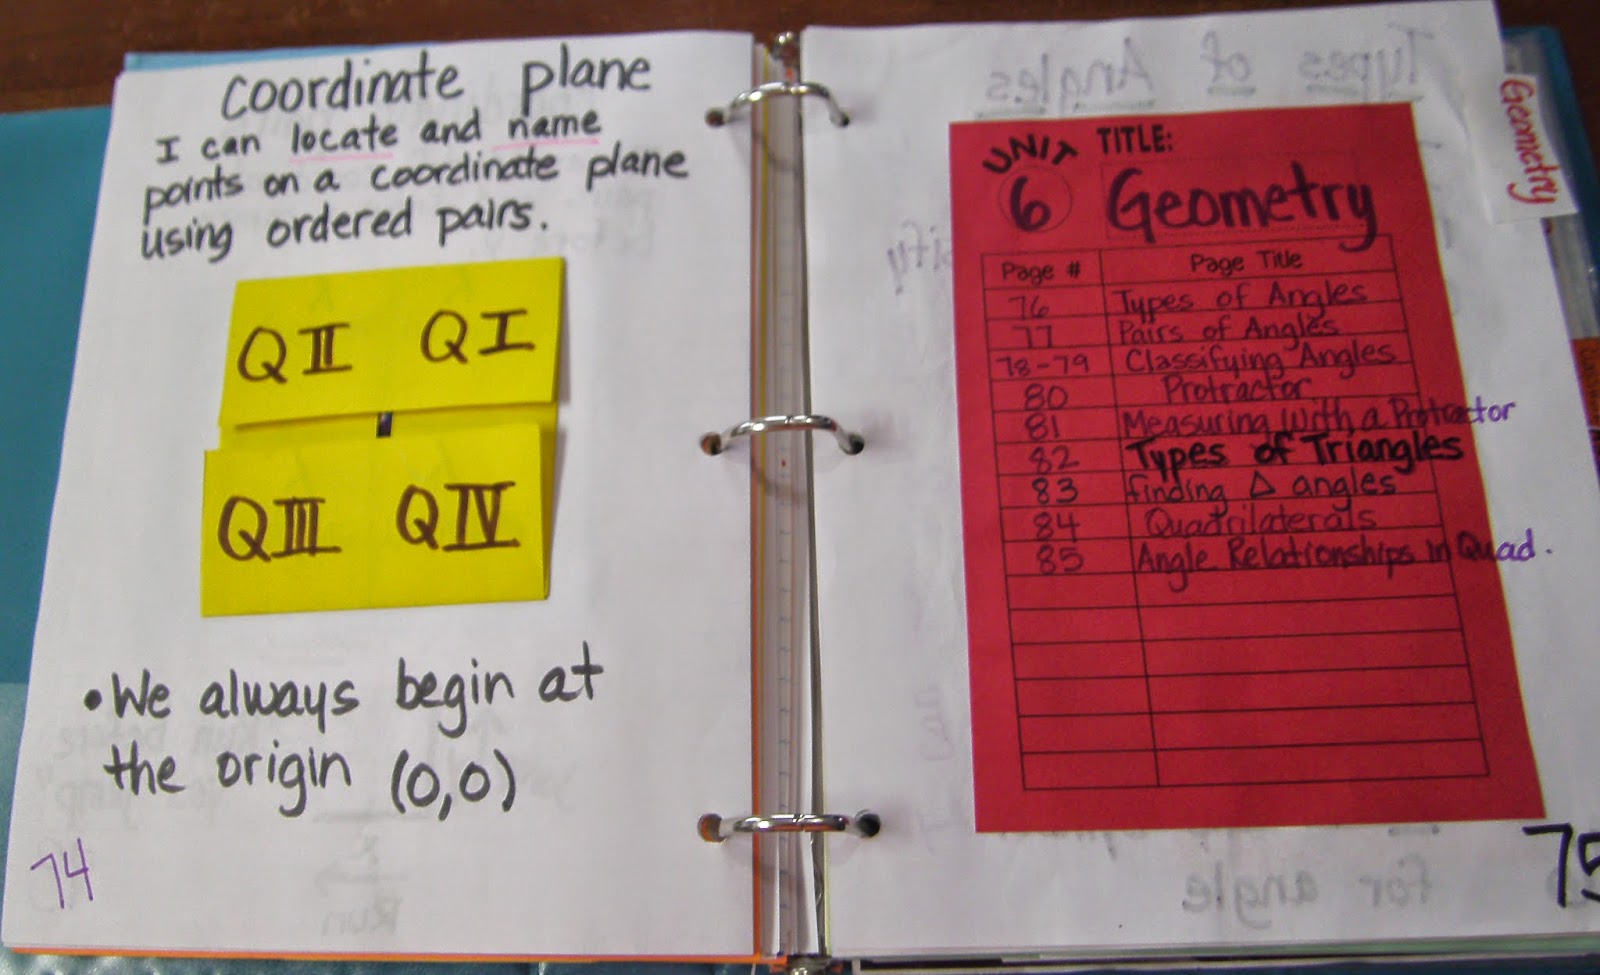 Coordinate plane
I can locate and name
points on a coordinate plane
using ordered pairs.
QII QI
QIII QIV
• We always begin at
the origin (0,0)
74
Types of Angles
Geometry
UNIT TITLE:
6 Geometry
Page # Page Title
76 Types of Angles
77 Pairs of Angles
78-79 Classifying Angles
80 Protractor
81 Measuring With a Protractor
82 Types of Triangles
83 finding Δ angles
84 Quadrilaterals
85 Angle Relationships in Quad.
for angle
75
Run